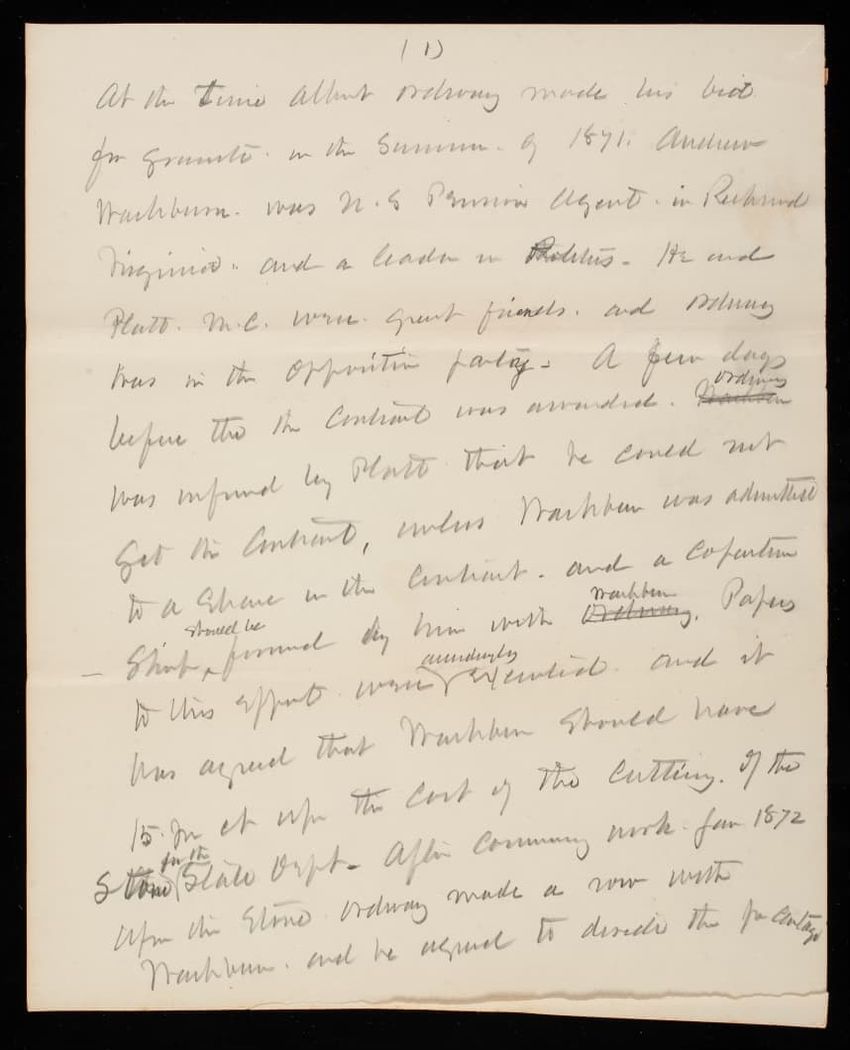 (1)
At the time Albert Ordway made his bid
for Granite. in the Summer. of 1871. Andrew
Washburn. was U.S Pension Agent. in Richmond
Virginia. and a leader in Politics. He and
Platt. M.C. were. great friends. and Ordway
was in the Opposition party. A few days
before the the Contract was awarded. Washburn Ordway
was informed by Platt that he could not
get the Contract, unless Washburn was admitted
to a Share in the Contract. and a Copartner
Ship, should be formed by him with Ordway. Washburn Papers
to this effect were accordingly executed. and it
was agreed that Washburn should have
15. per ct upon the cost of the Cutting. of the
Stone for the State Dept. After commencing work. Jan 1872
upon the Stone Ordway made a row with
Washburn. and he agreed to divide the per centage